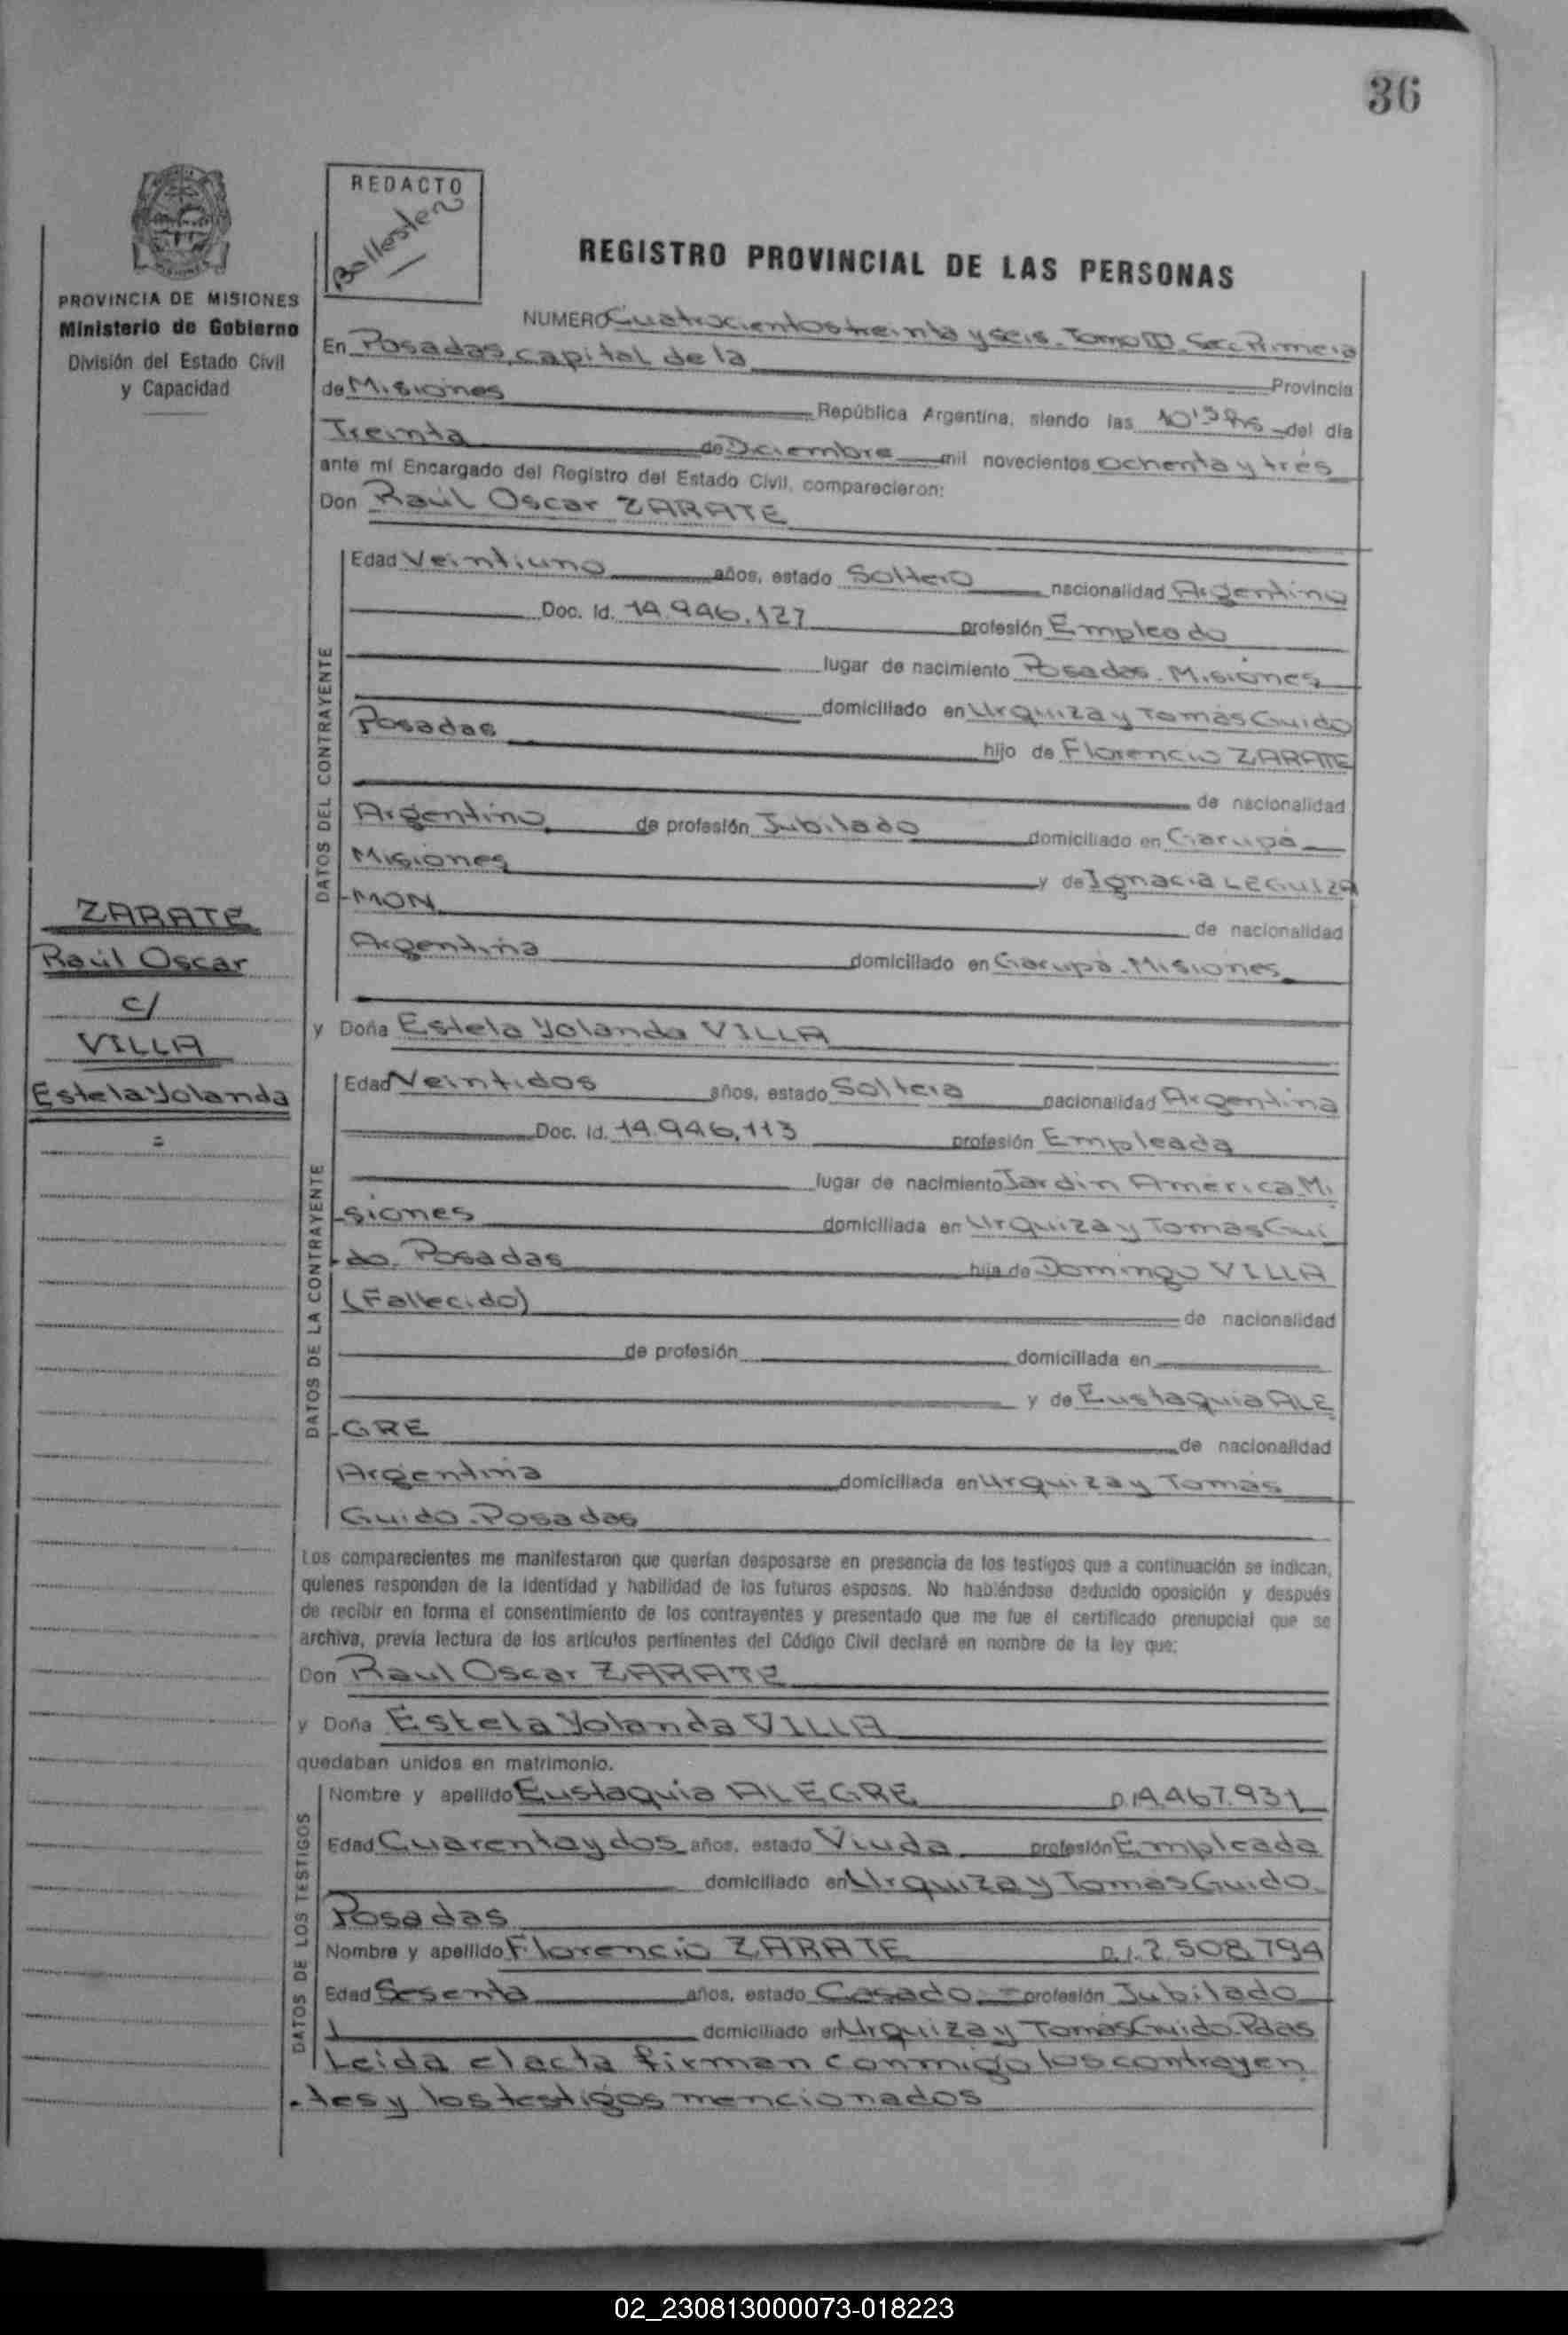 36
REDACTO
Ballester
REGISTRO PROVINCIAL DE LAS PERSONAS
PROVINCIA DE MISIONES
Ministerio de Gobierno
División del Estado Civil
y Capacidad
NUMERO Cuatrocientos treinta y seis. Tomo III. Sec Primera
En Posadas, capital de la Provincia
de Misiones República Argentina, siendo las 10 hs del día
Treinta de Diciembre mil novecientos ochenta y tres
ante mí Encargado del Registro del Estado Civil, comparecieron:
Don Raúl Oscar ZARATE
DATOS DEL CONTRAYENTE
Edad Veintiuno años, estado Soltero nacionalidad Argentino
Doc. Id. 14.946.127 profesión Empleado
lugar de nacimiento Posadas. Misiones
domiciliado en Urquiza y Tomás Guido
Posadas hijo de Florencio ZARATE
de nacionalidad
Argentino de profesión Jubilado domiciliado en Garupá
Misiones y de Ignacia LEGUIZA
-MON de nacionalidad
Argentina domiciliado en Garupá. Misiones
ZARATE
Raúl Oscar
c/
VILLA
Estela Yolanda
=
y Doña Estela Yolanda VILLA
DATOS DE LA CONTRAYENTE
Edad Veintidos años, estado Soltera nacionalidad Argentina
Doc. Id. 14.946.113 profesión Empleada
lugar de nacimiento Jardin America. Mi
-siones domiciliada en Urquiza y Tomas Gui
-do. Posadas hija de Domingo VILLA
(Fallecido) de nacionalidad
de profesión domiciliada en
y de Eustaquia ALE
-GRE de nacionalidad
Argentina domiciliada en Urquiza y Tomás
Guido. Posadas
Los comparecientes me manifestaron que querían desposarse en presencia de los testigos que a continuación se indican,
quienes responden de la identidad y habilidad de los futuros esposos. No habiéndose deducido oposición y después
de recibir en forma el consentimiento de los contrayentes y presentado que me fue el certificado prenupcial que se
archiva, previa lectura de los artículos pertinentes del Código Civil declaré en nombre de la ley que:
Don Raul Oscar ZARATE
y Doña Estela Yolanda VILLA
quedaban unidos en matrimonio.
DATOS DE LOS TESTIGOS
Nombre y apellido Eustaquia ALEGRE 467.931
Edad Cuarenta y dos años, estado Viuda profesión Empleada
domiciliado en Urquiza y Tomás Guido.
Posadas
Nombre y apellido Florencio ZARATE D.I. 2.508.794
Edad Sesenta años, estado Casado profesión Jubilado
domiciliado en Urquiza y Tomás Guido. Pdas
Leida el acta firman conmigo los contrayen
-tes y los testigos mencionados
02_230813000073-018223